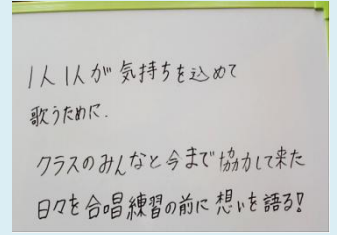 1人1人が気持ちを込めて
歌うために.
クラスのみんなと今まで協力して来た
日々を合唱練習の前に想いを語る!